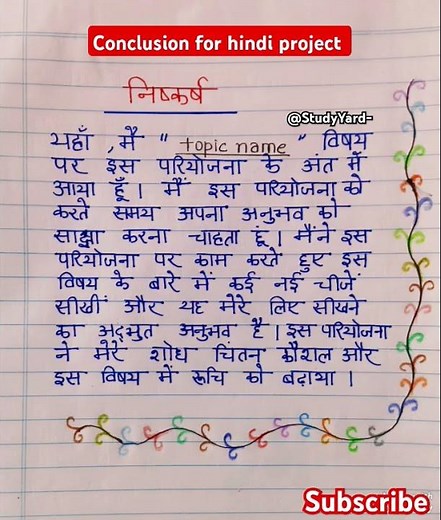 Conclusion for hindi project
निष्कर्ष
@StudyYard-
यहाँ, मैं " topic name " विषय
पर इस परियोजना के अंत में
आया हूँ। मैं इस परियोजना को
करते समय अपना अनुभव को
साझा करना चाहता हूं। मैंने इस
परियोजना पर काम करते हुए इस
विषय के बारे में कई नई चीजें
सीखीं और यह मेरे लिए सीखने
का अद्भुत अनुभव है। इस परियोजना
ने मेरे शोध चिंतन कौशल और
इस विषय में रूचि को बढ़ाया।
Subscribe